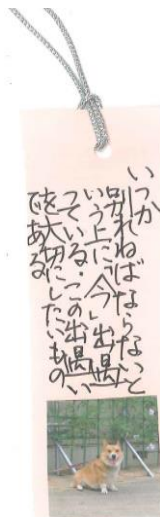 いつか
別れねばならないと
いう上に「今」出遇
っている。この出遇い
を大切にしたいもの
である